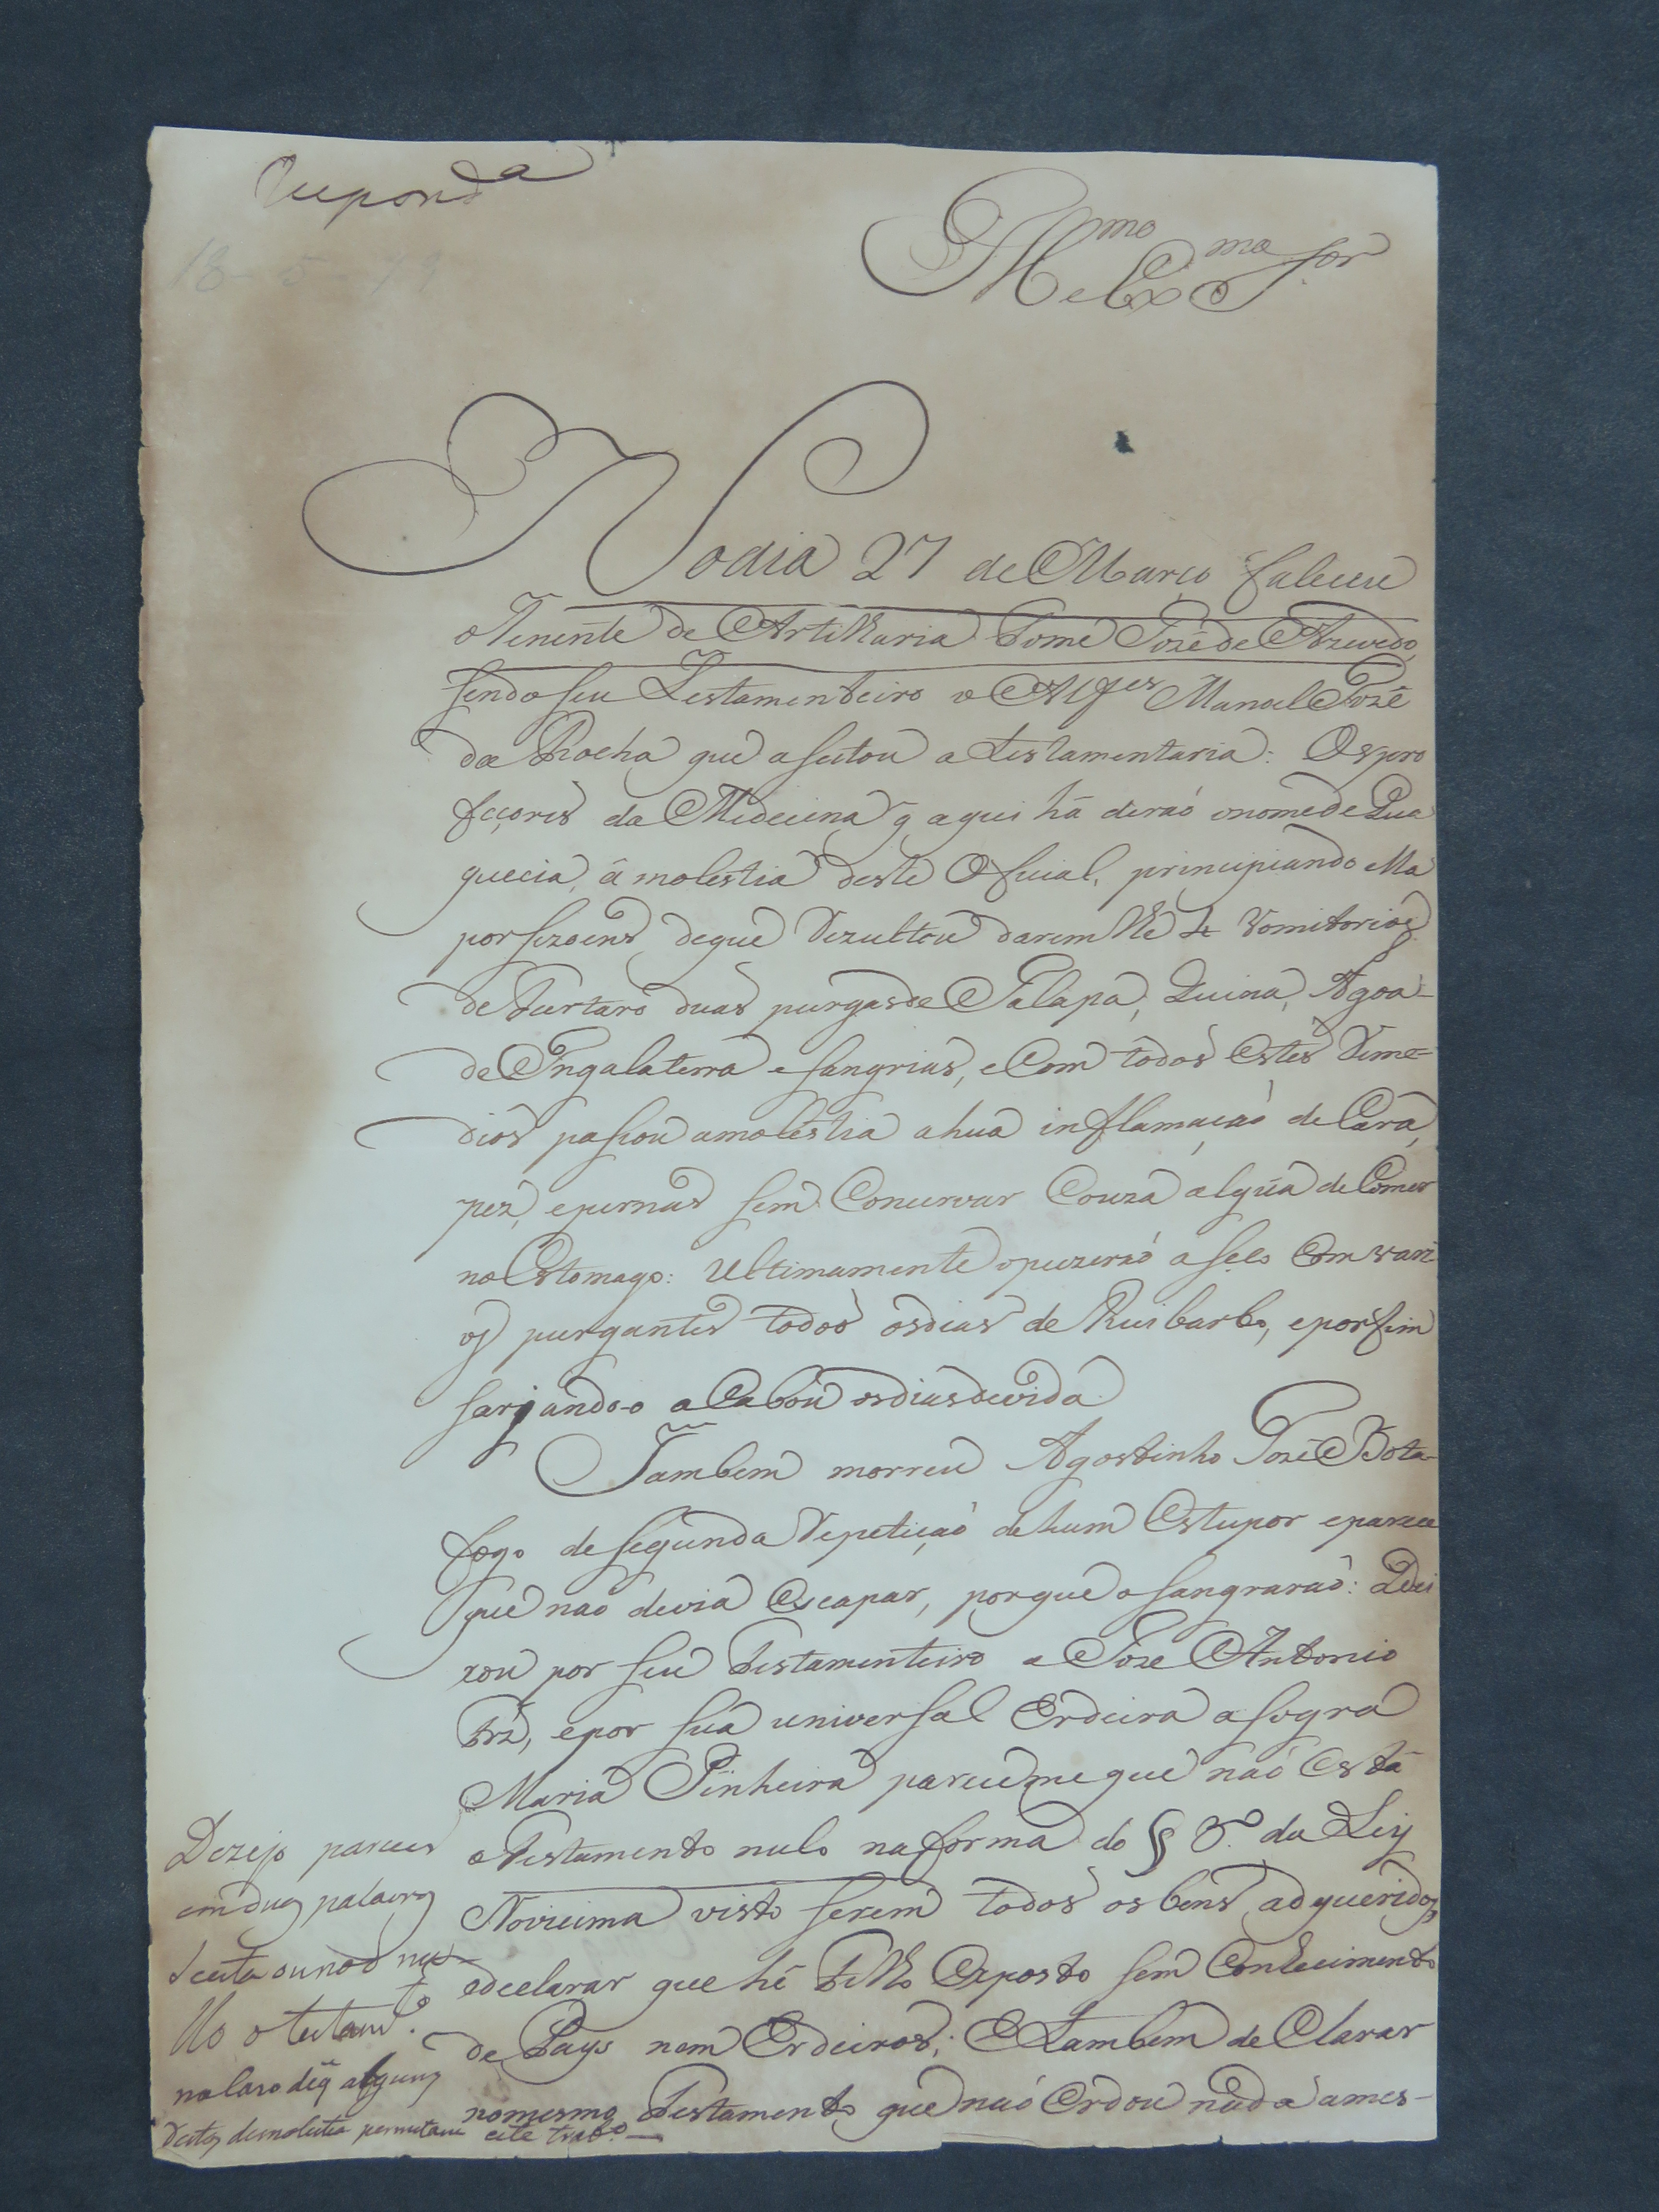 Responda
18-5-79
Illmo e Exmo Sor
No dia 27 de Março faleceu
o Tenente de Artilharia Tomé José de Azevedo,
sendo seu Testamenteiro o Alferes Manoel José
da Rocha que aseitou a testamentaria: Os pro
feçores da Medecina q aqui há deraõ o nome de
quecia, á molestia deste Oficial, principiando ella
por sezoens, de que rezultou darem lhe 4 vomitorios
de Turtaro duas purgas de Jalapa, Quina, Agoa-
de Ingalaterra e sangrias, e Com todos Estes reme-
dios pasou a molestia a hua inflamaçaõ de Cara,
pez, e pernas sem Concervar Couza algũa de Comer
no Estomago: Ultimamente o puzeraõ a seco Com vari
os purgantes todos os dias de Ruibarbo, e por fim
sarjando-o acabou os dias de vida.
Tambem morreu Agostinho José Bota-
fogo de segunda repetiçaõ de hum Estupor e parece
que naõ devia Escapar, porque o sangraraõ: Dei
xou por seu Testamenteiro a José Antonio
Frz, e por sua universal Erdeira a sogra
Maria Pinheira pareceme que naõ Está
o Testamento nulo na forma do § 3.º da Ley
Noviscima visto serem todos os bens adqueridos,
e declarar que hé Filho Exposto sem Conhecimento
de Pays nem Erdeiros; E tambem de Clarar
no mesmo Testamento que naõ Erdou nada a mes-
Dezejo parecer
em duas palavras
se esta ou naõ nu-
llo o testamto.
no caso de q alguns
destes de molestia permitam este trabo.